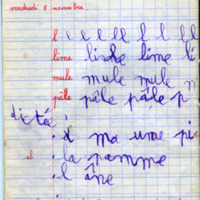 vendredi 8 novembre.
l l l l l l l l
lime liche lime li
mule mule mule m
pâle pâle pâle p
dictée
il ma une pi
la pomme
l âne